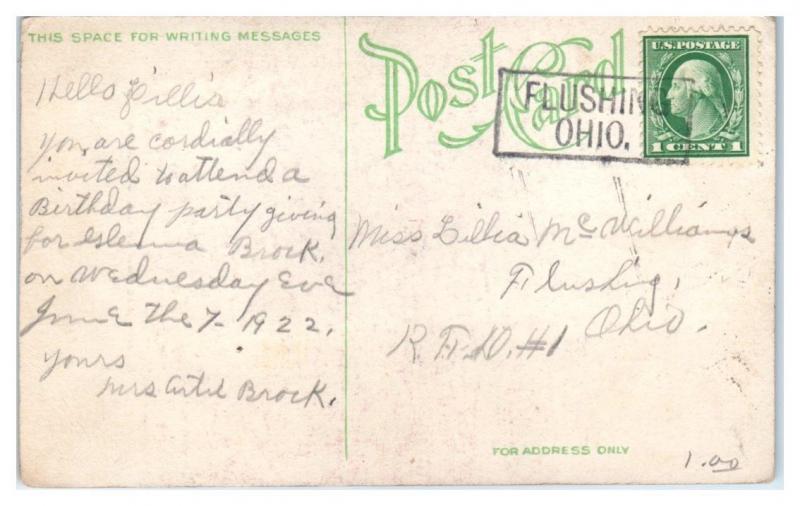 THIS SPACE FOR WRITING MESSAGES
Hello Lillia
you, are cordially
invited to attend a
Birthday party giving
for Glenna Brock.
on Wednesday Eve
June the 7- 1922.
yours
Mrs Brock.
Post Card
U.S. POSTAGE
1 CENT 1
FLUSHING
OHIO.
Miss Lillia McWilliams
Flushing,
Ohio.
R.F.D. #1
FOR ADDRESS ONLY
1.00